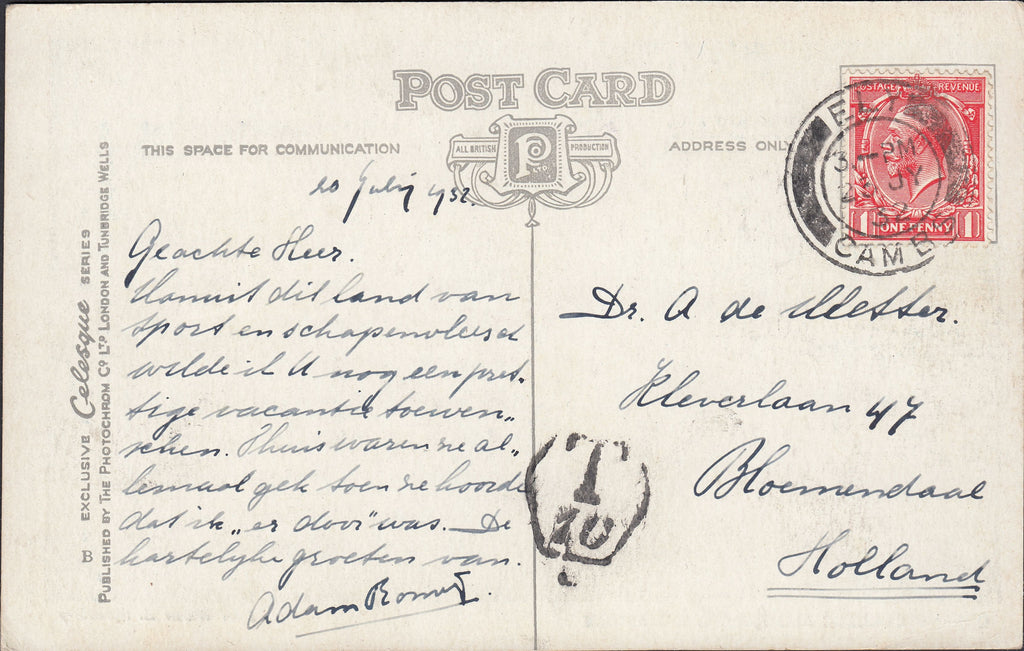 POST CARD
THIS SPACE FOR COMMUNICATION
ALL BRITISH PRODUCTION
ADDRESS ONLY
B EXCLUSIVE Celesque SERIES
PUBLISHED BY THE PHOTOCHROM CO LTD LONDON AND TUNBRIDGE WELLS
20 July 1932.
Geachte Heer.
Vanuit dit land van
sport en schapenvleesch
wilde ik U nog een pret„
tige vacantie toewen„
schen. Thuis waren ze al„
lemaal gek toen ze hoorde
dat ik „er door" was. De
hartelijke groeten van.
Adam
POSTAGE REVENUE
1 ONE PENNY 1
ELY
3 PM
JY
32
CAMBS
Dr. A de Metter.
Kleverlaan 47
Bloemendaal
Holland
T
10